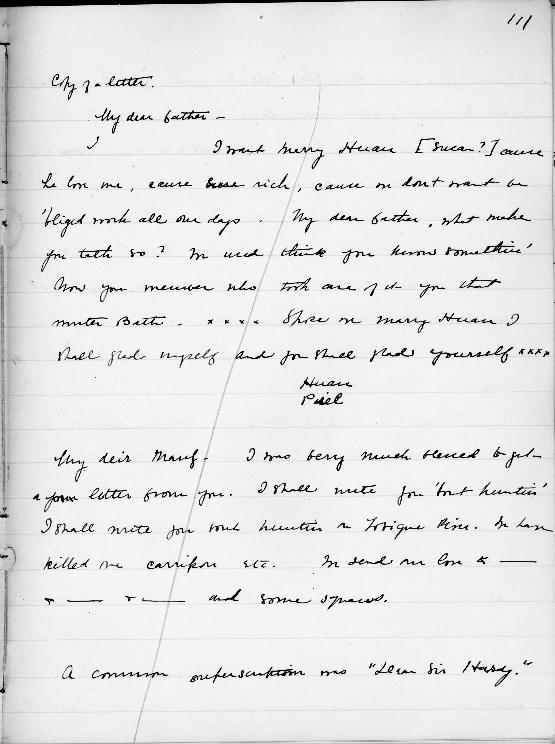 111
Copy of a letter.
My dear father –
I want marry Huan [Susan?] cause
he lov me, cause rich, cause on don't want be
'bliged work all our days. My dear father, what make
you talk so? used think you know somethin'
Now you member who took care of it you that
winter Bath. x x x x Spose on marry Huan I
shall glad myself and you shall glad yourself xxxx
Huan
Piel
My deir Many. I was bery much blessed to get
a letter from you. I shall write you 'bout huntin'
I shall write you bout huntin Tobique River. have
killed carriboo etc. send love &
and some spaces.
A common superscription was "Dear Sir Hardy."